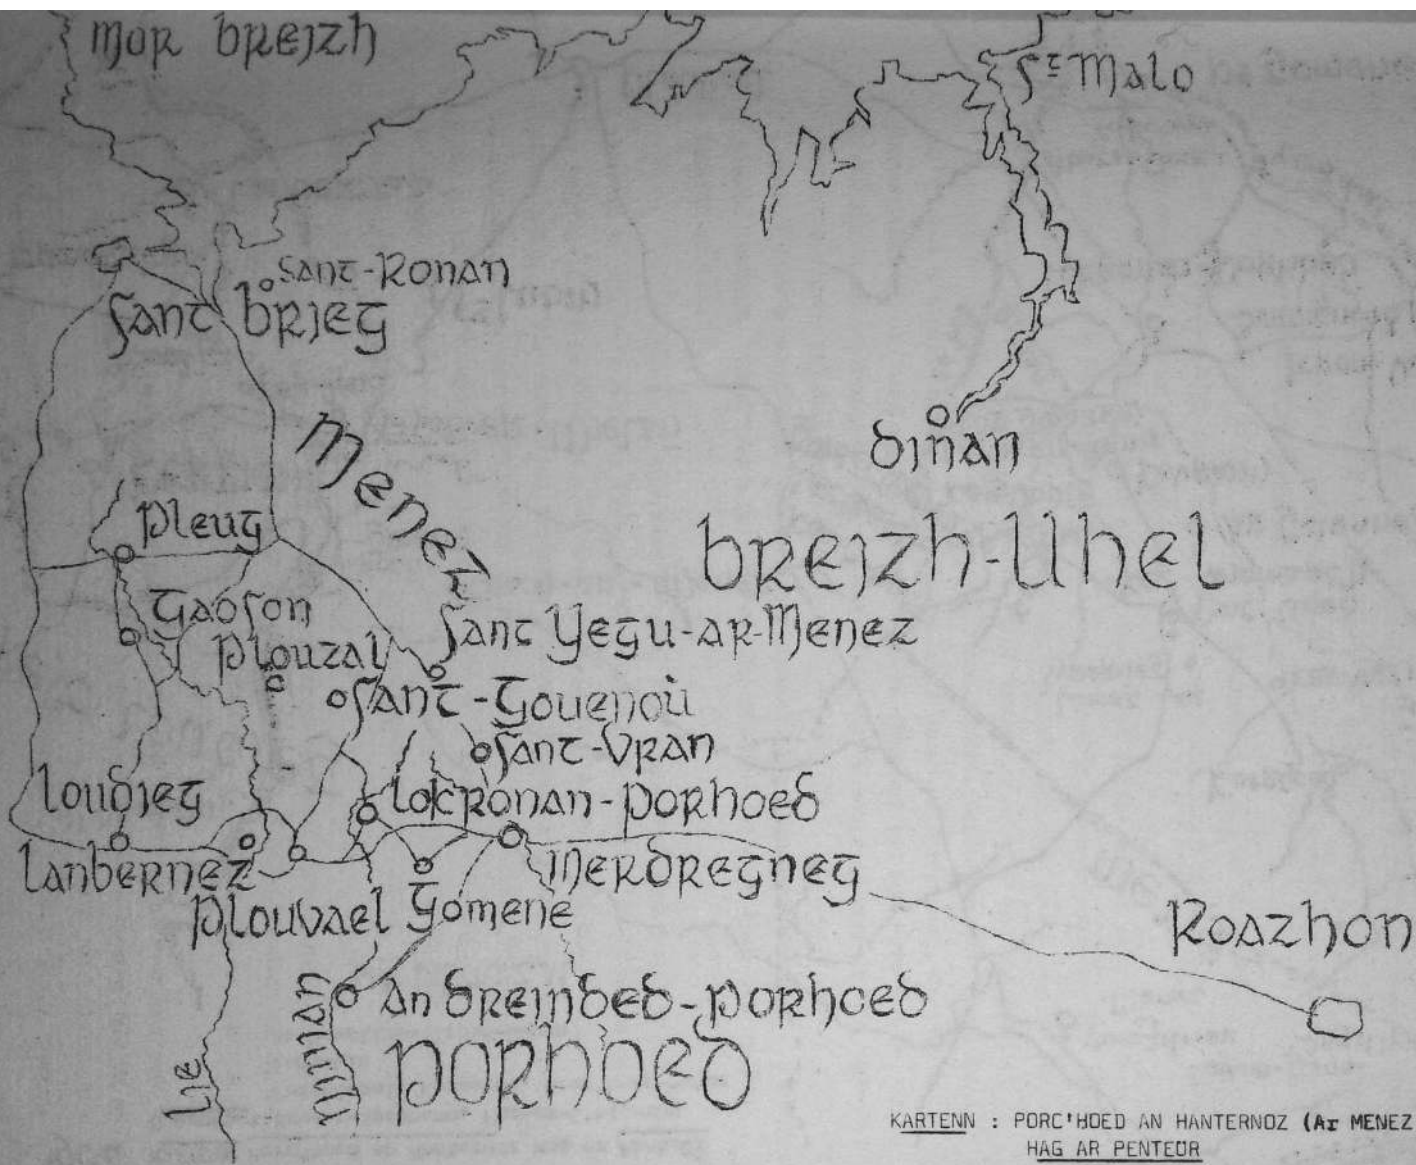 Mor Breizh
St Malo
Sant-Ronan
Sant Brieg
Dinan
Menez
Pleug
Breizh-Uhel
Gaoson
Sant Yegu-ar-Menez
Plouzal
Sant-Gouenoù
Sant-Vran
Loudieg
Lokronan-Porhoed
Lanbernez
Merdregneg
Plouvael
Gomene
Roazhon
An Dreinded-Porhoed
Porhoed
Lie
Ninian
KARTENN : PORC'HOED AN HANTERNOZ (Ar MENEZ
HAG AR PENTEUR